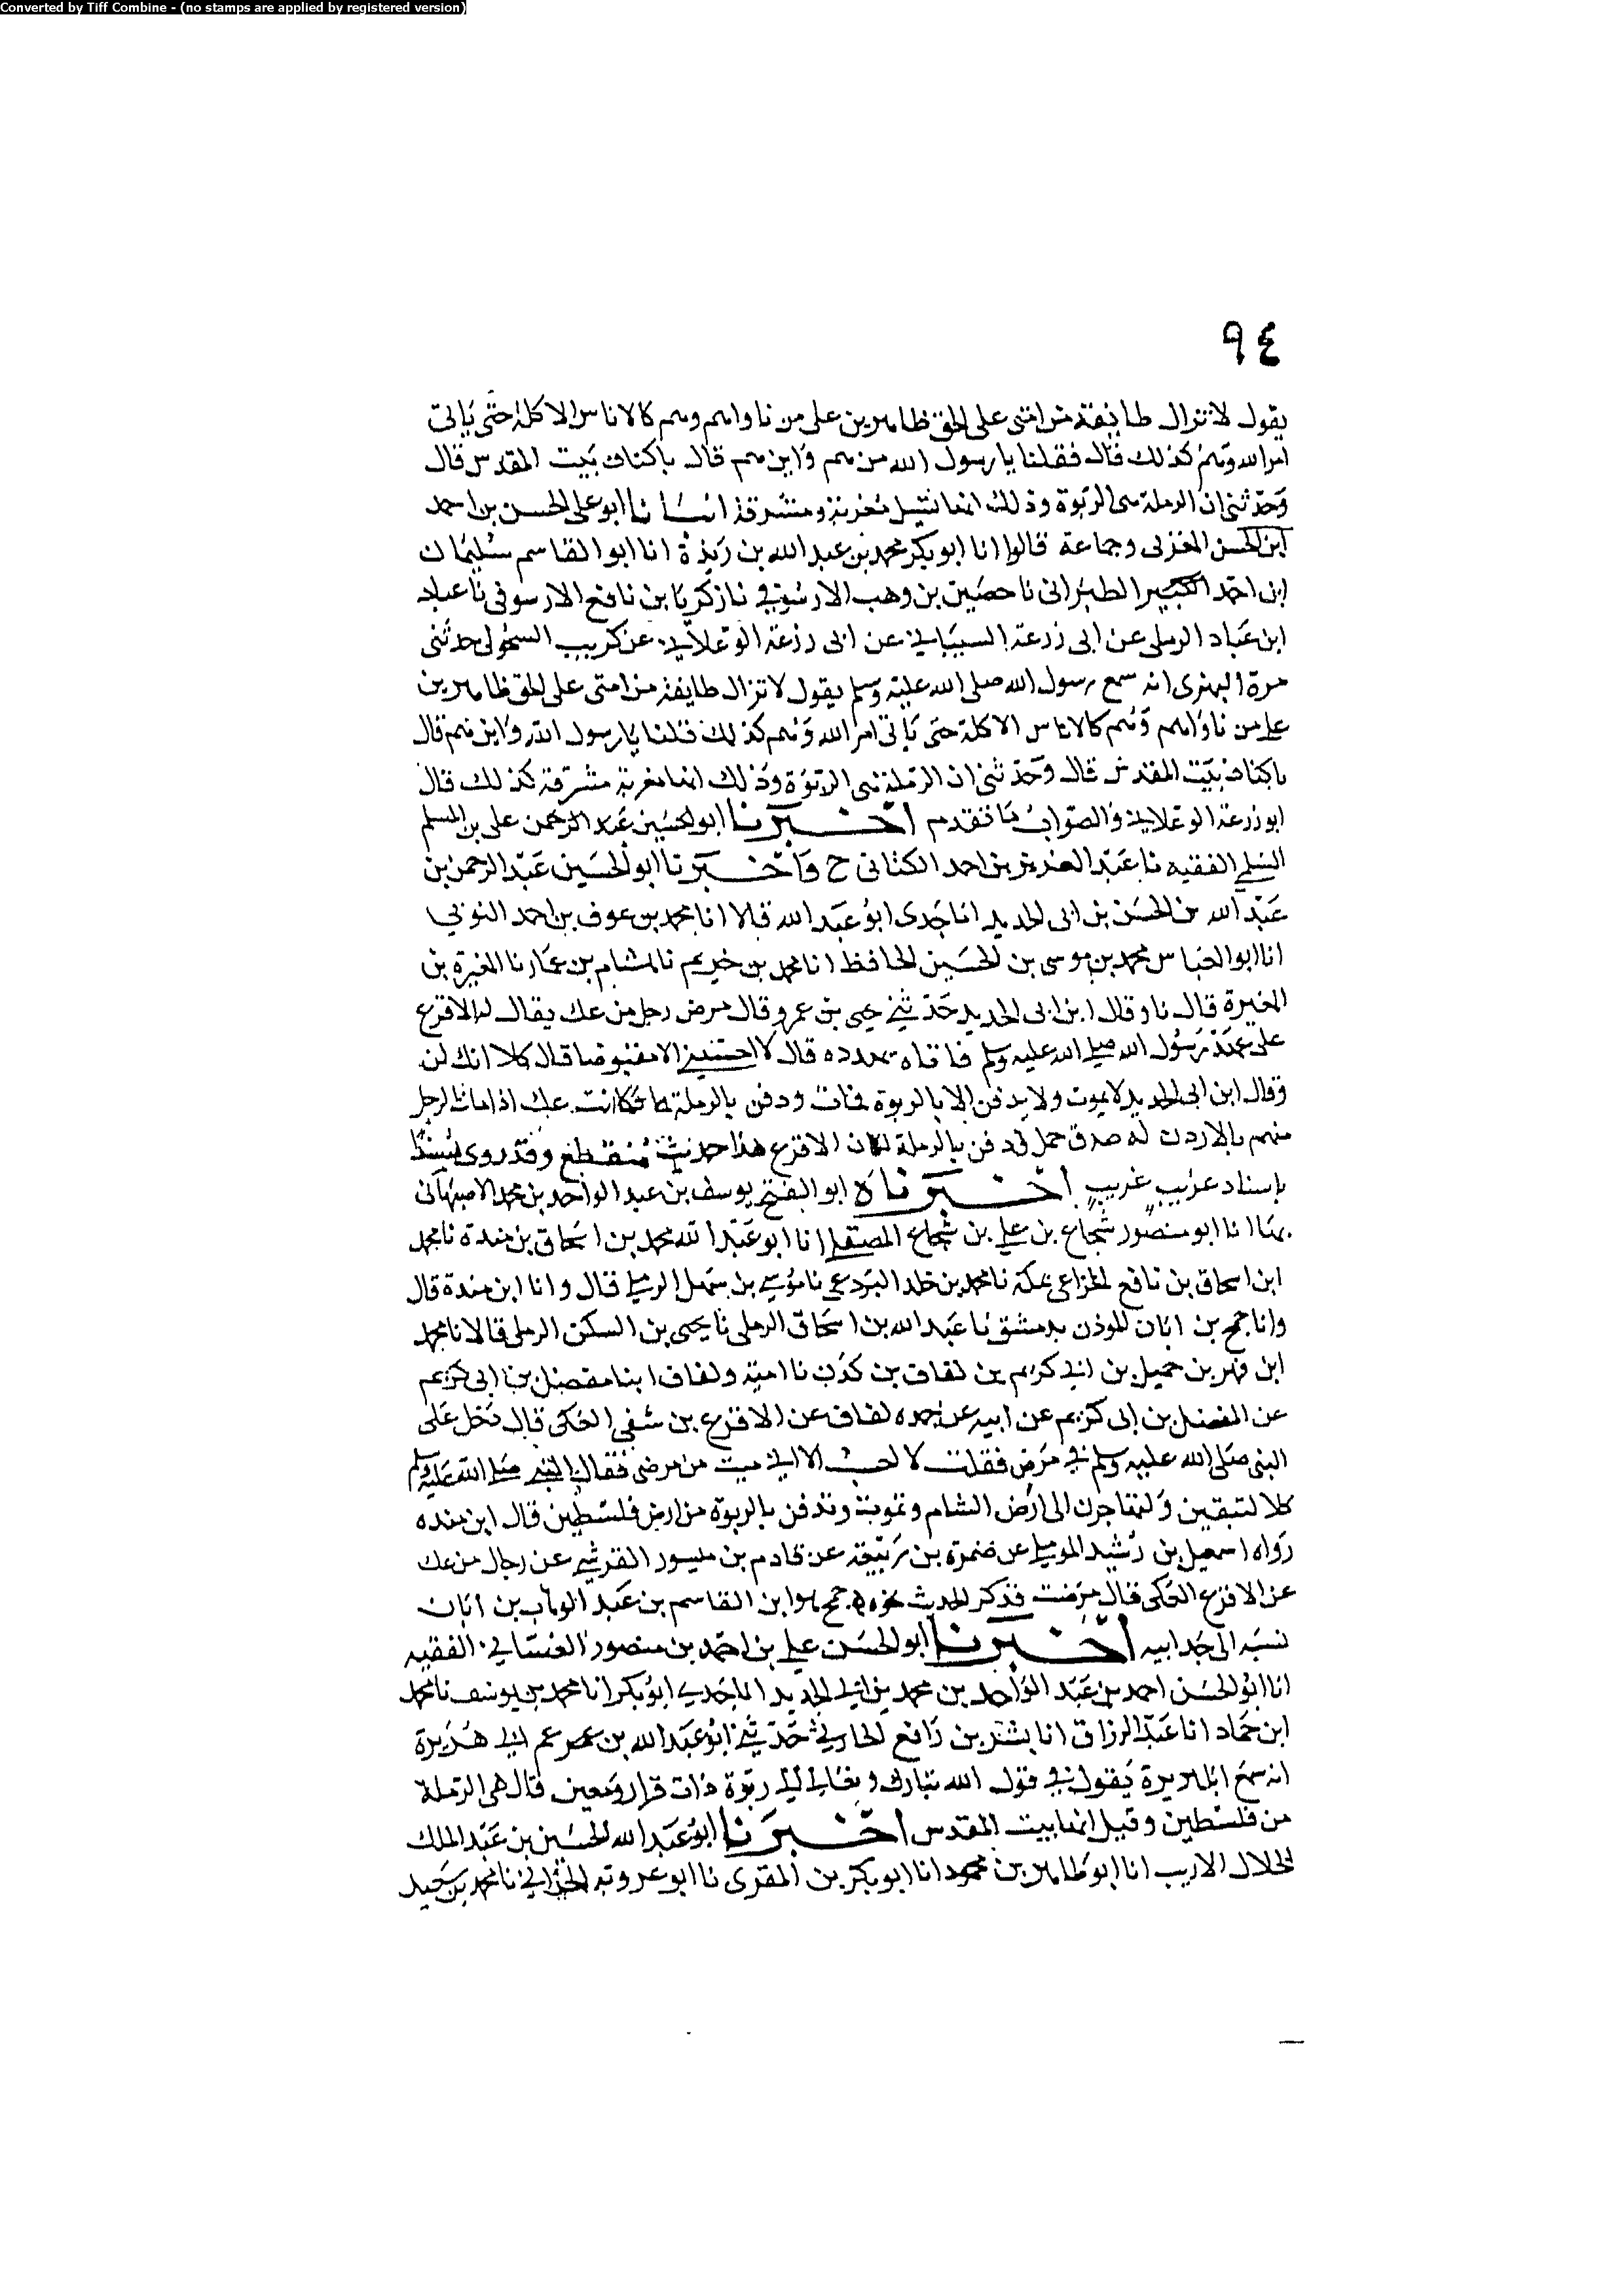 Converted by Tiff Combine - (no stamps are applied by registered version)
٩٤
يقول لا تزال طايفة من امتي على الحق ظاهرين على من ناواهم وهم كالاناس الاكلة حتى ياتي
امر الله وهم كذلك قال فقلنا يا رسول الله من هم واين هم قال باكناف بيت المقدس قال
وحدثني ان الرملة هي الربوة وذلك انها تسيل مغربة ومشرقة انبانا ابو علي الحسن بن احمد
ابن الحسن المغربي وجماعة قالوا انا ابو بكر محمد بن عبد الله بن ريذة انا ابو القاسم سليمان
ابن احمد الكبير الطبراني نا حصين بن وهب الارسوفي نا زكريا بن نافع الارسوفي نا عباد
ابن عباد الرملي عن ابي زرعة السيباني عن ابي زرعة الوعلاني عن كريب السحولي حدثني
مرة البهزي انه سمع رسول الله صلى الله عليه وسلم يقول لا تزال طايفة من امتي على الحق ظاهرين
على من ناواهم وهم كالاناس الاكلة حتى ياتي امر الله وهم كذلك قلنا يا رسول الله واين هم قال
باكناف بيت المقدس قال وحدثني ان الرملة هي الربوة وذلك انها مغربة مشرقة كذلك قال
ابو زرعة الوعلاني والصواب ما تقدم اخبرنا ابو الحسين عبد الرحمن علي بن المسلم
السلمي الفقيه نا عبد العزيز بن احمد الكتاني ح واخبرنا ابو الحسين عبد الرحمن بن
عبد الله بن الحسن بن ابي الحديد انا جدي ابو عبد الله قالا انا محمد بن عوف بن احمد
انا ابو العباس محمد بن موسى بن الحسين الحافظ انا محمد بن خريم نا هشام بن عمار نا المغيرة بن
المغيرة قال نا وقال ابن ابي الحديد حدثني يحيى بن عمرو قال مرض رجل من عك يقال له الاقرع
على عهد رسول الله صلى الله عليه وسلم فاتاه يعوده قال لا احسبني الا مقبوضا قال كلا انك لن
وقال ابن ابي الحديد لا يموت ولا يدفن الا بالربوة فمات ودفن بالرملة فكانت عك اذا مات الرجل
منهم بالاردن له صدق حمل فدفن بالرملة لمكان الاقرع هذا حديث منقطع وقد روي مسندا
باسناد غريب اخبرناه ابو الفتح يوسف بن عبد الواحد بن محمد الاصبهاني
بها انا ابو منصور شجاع بن علي بن شجاع المصقلي انا ابو عبد الله محمد بن اسحاق بن مندة نا محمد
ابن اسحاق بن نافع الخزاعي بمكة نا محمد بن خلد البردعي نا موسى بن سهل الرملي قال وانا ابن مندة قال
وانا جمح بن ابان المؤذن بدمشق نا عبد الله بن اسحاق الرملي نا يحيى بن السكن الرملي قالا نا محمد
ابن فهر بن جميل بن ابي كريم بن لفاف بن كدن نا امية ولفاف ابنا مفضل بن ابي كريم
عن المفضل بن ابي كريم عن ابيه عن جده لفاف عن الاقرع بن شفي العكي قال دخل علي
النبي صلى الله عليه وسلم في مرض فقلت لا احسب الا اني ميت من مرضي فقال النبي صلى الله عليه وسلم
كلا لتبقين ولتهاجرن الى ارض الشام وتموت وتدفن بالربوة من ارض فلسطين قال ابن منده
رواه اسمعيل بن رشيد الرملي عن ضمرة بن ربيعة عن قادم بن ميسور القرشي عن رجال من عك
عن الاقرع العكي قال مرضت فذكر الحديث نحوه جمح هو ابن القاسم بن عبد الوهاب بن ابان
نسبه الى جد ابيه اخبرنا ابو الحسن علي بن احمد بن منصور الغساني الفقيه
انا ابو الحسن احمد بن عبد الواحد بن محمد بن ابي الحديد انا جدي ابو بكر انا محمد بن يوسف نا محمد
ابن حماد انا عبد الرزاق انا بشر بن رافع الحارثي حدثني ابو عبد الله بن عم ابي هريرة
انه سمع ابا هريرة يقول في قول الله تبارك وتعالى الى ربوة ذات قرار ومعين قال هي الرملة
من فلسطين وقيل انها بيت المقدس اخبرنا ابو عبد الله الحسين بن عبد الملك
الخلال الاديب انا ابو طاهر بن محمود انا ابو بكر بن المقرى نا ابو عروبة الحراني نا محمد بن سعيد